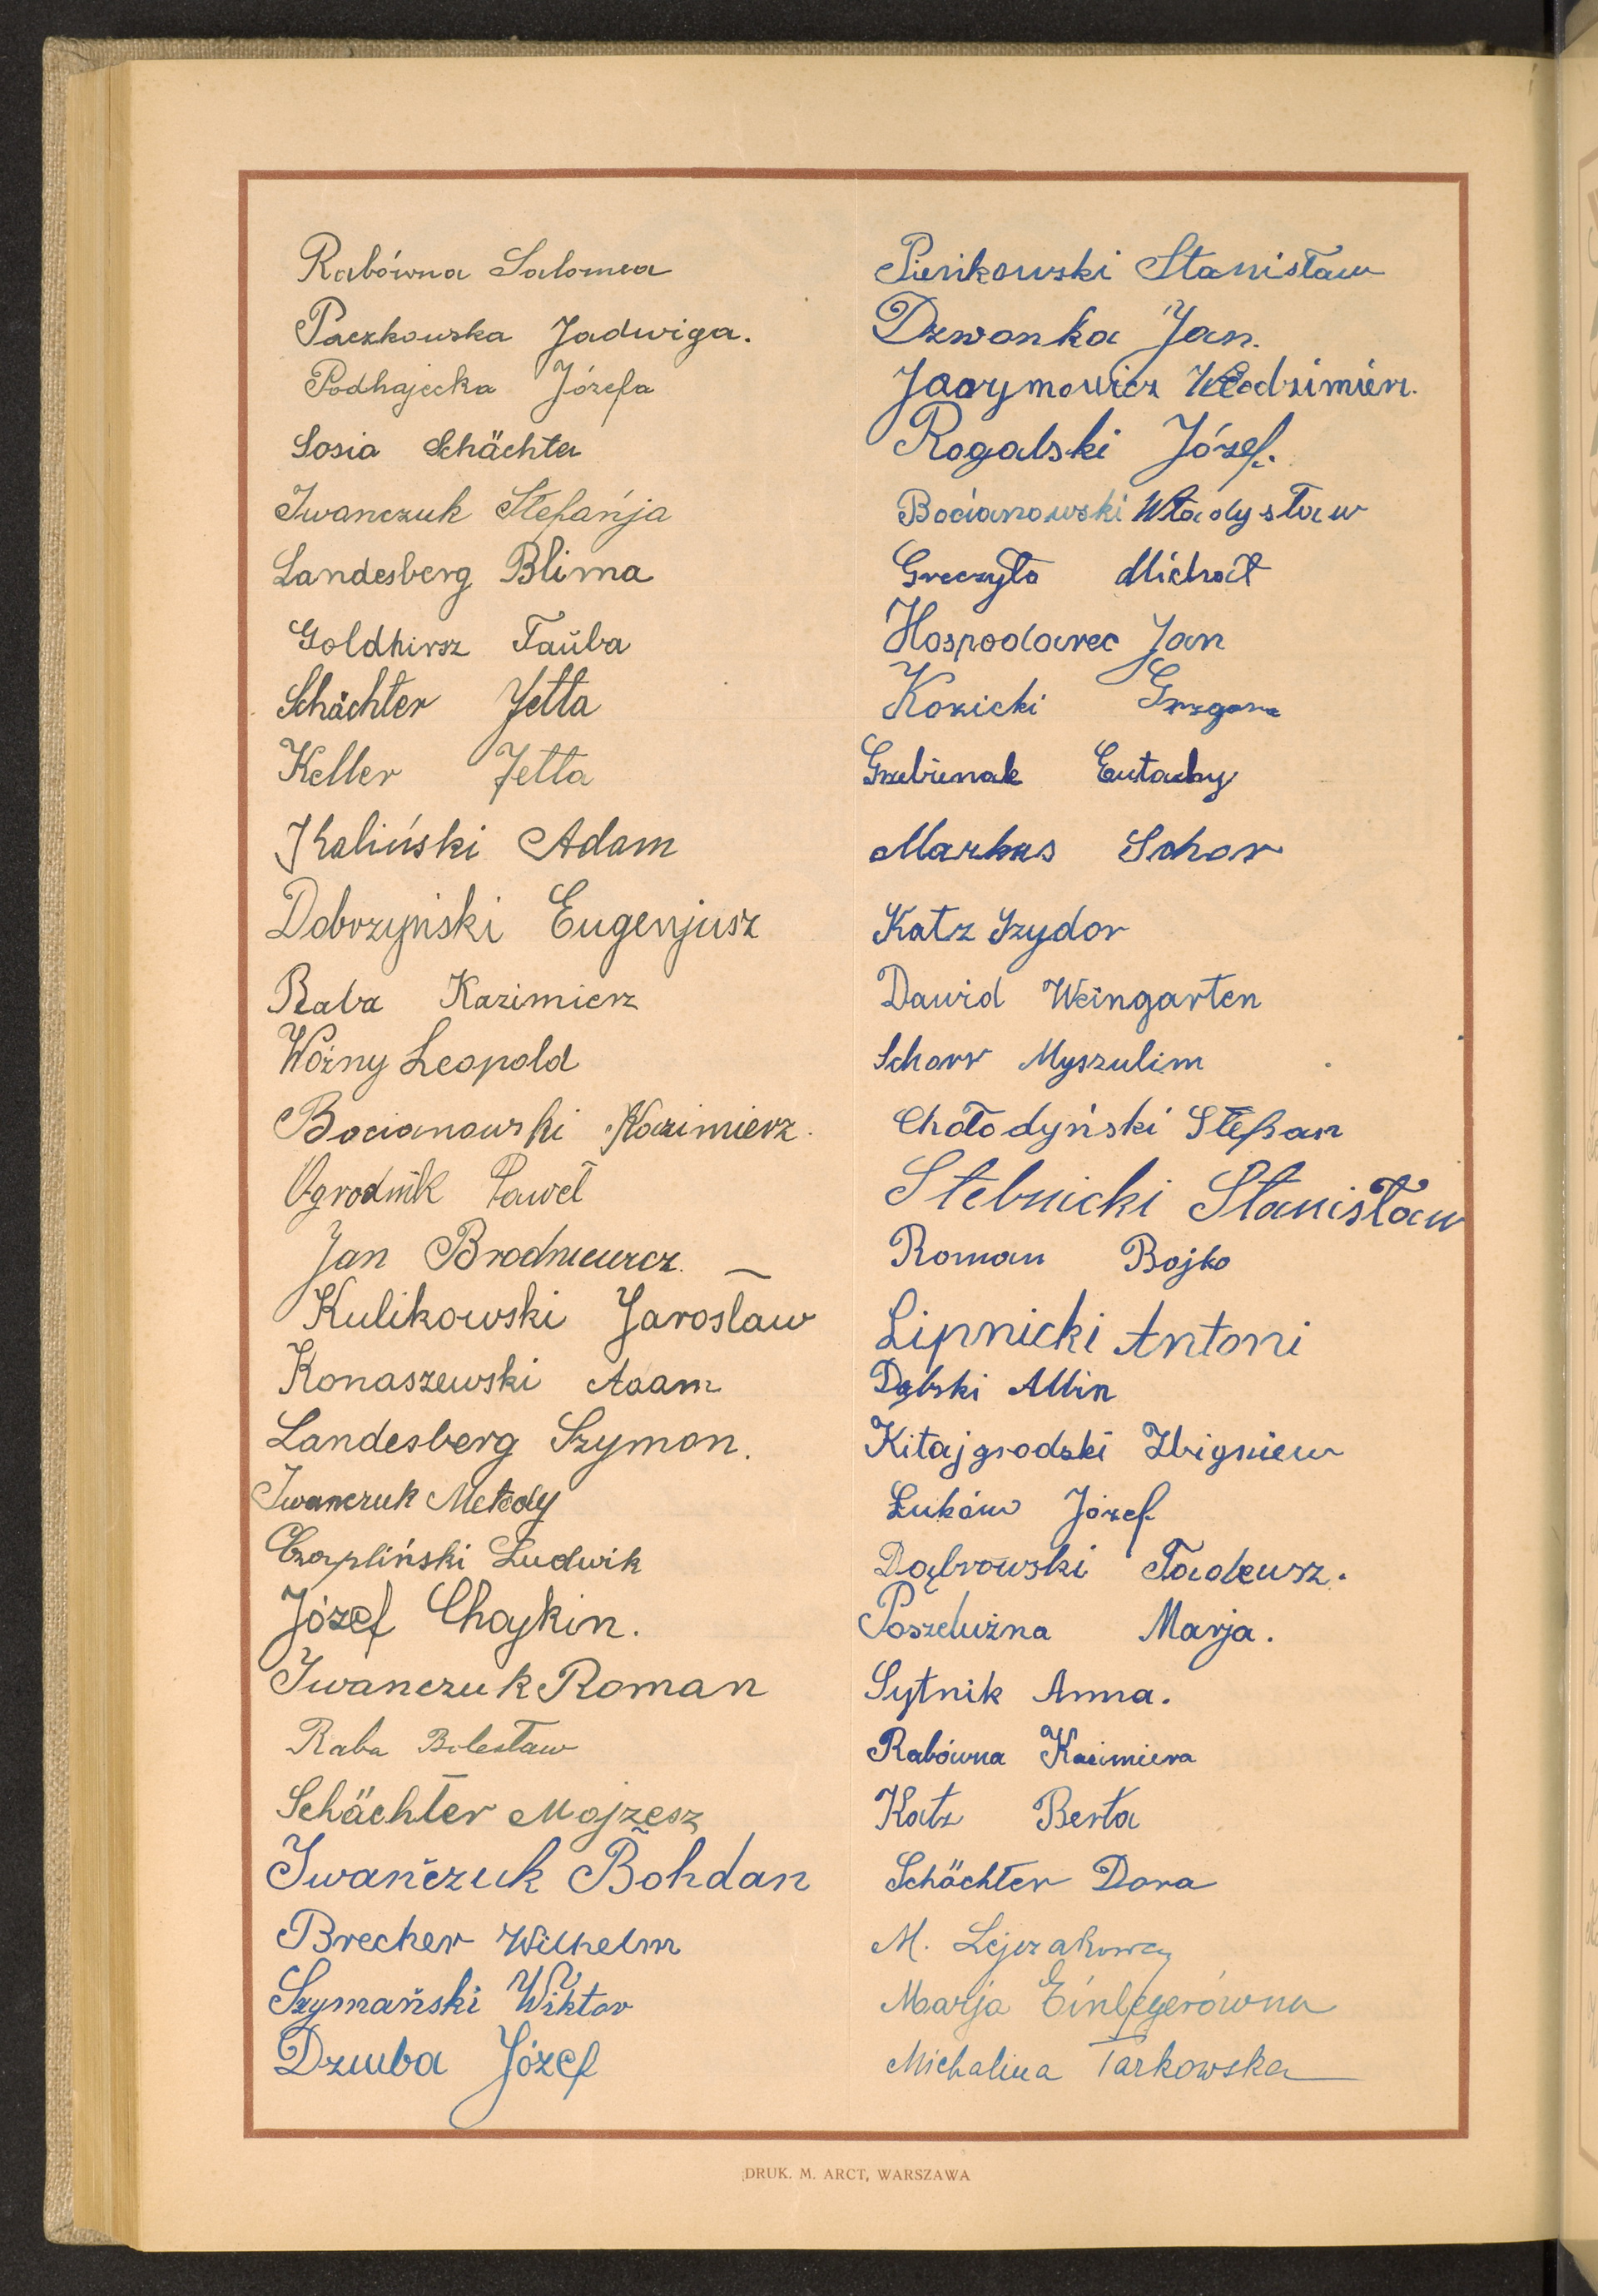 Rabówna Salomea
Paczkowska Jadwiga.
Podhajecka Józefa
Sosia Schächter
Iwanczuk Stefańja
Landesberg Blima
Goldhirsz Tauba
Schächter Jetta
Keller Jetta
Kaliński Adam
Dobrzyński Eugenjusz
Raba Kazimierz
Woźny Leopold
Bocianowski Kazimierz.
Ogrodnik Paweł
Jan Brodniewicz.
Kulikowski Jaroslaw
Konaszewski Adam
Landesberg Szymon.
Iwanczuk Metody
Czapliński Ludwik
Józef Chajkin.
Iwanczuk Roman
Raba Bolesław
Schächter Mojzesz
Iwańczuk Bohdan
Brecher Wilhelm
Szymański Wiktor
Dziuba Józef
Pieńkowski Stanisław
Dzwonka Jan.
Jaarymowicz Włodzimierz.
Rogalski Józef.
Bocianowski Władysław
Greczyło Michał
Hospodarec Jan
Kozicki Grzegorz
Grzebieniak Eustachy
Markus Schor
Katz Izydor
Dawid Weingarten
Schorr Myszulim
Chołodyński Stefan
Stebnicki Stanisław
Roman Bojko
Lipnicki Antoni
Dąbski Albin
Kitajgrodzki Zbigniew
Łuków Józef
Dąbrowski Tadeusz.
Poszeluźna Marja.
Sytnik Anna.
Rabówna Kazimiera
Katz Berta
Schächter Dora
M.
Marja Einlegerówna
Michalina Tarkowska
DRUK. M. ARCT, WARSZAWA